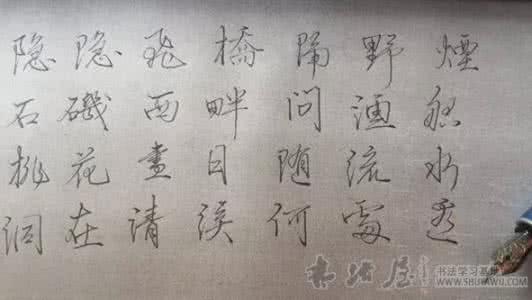 隐隐飛橋隔野煙
石磯西畔问漁船
桃花盡日随流水
洞在清溪何處邊
书法屋 书法学习基地
WWW.SHUFAWU.COM